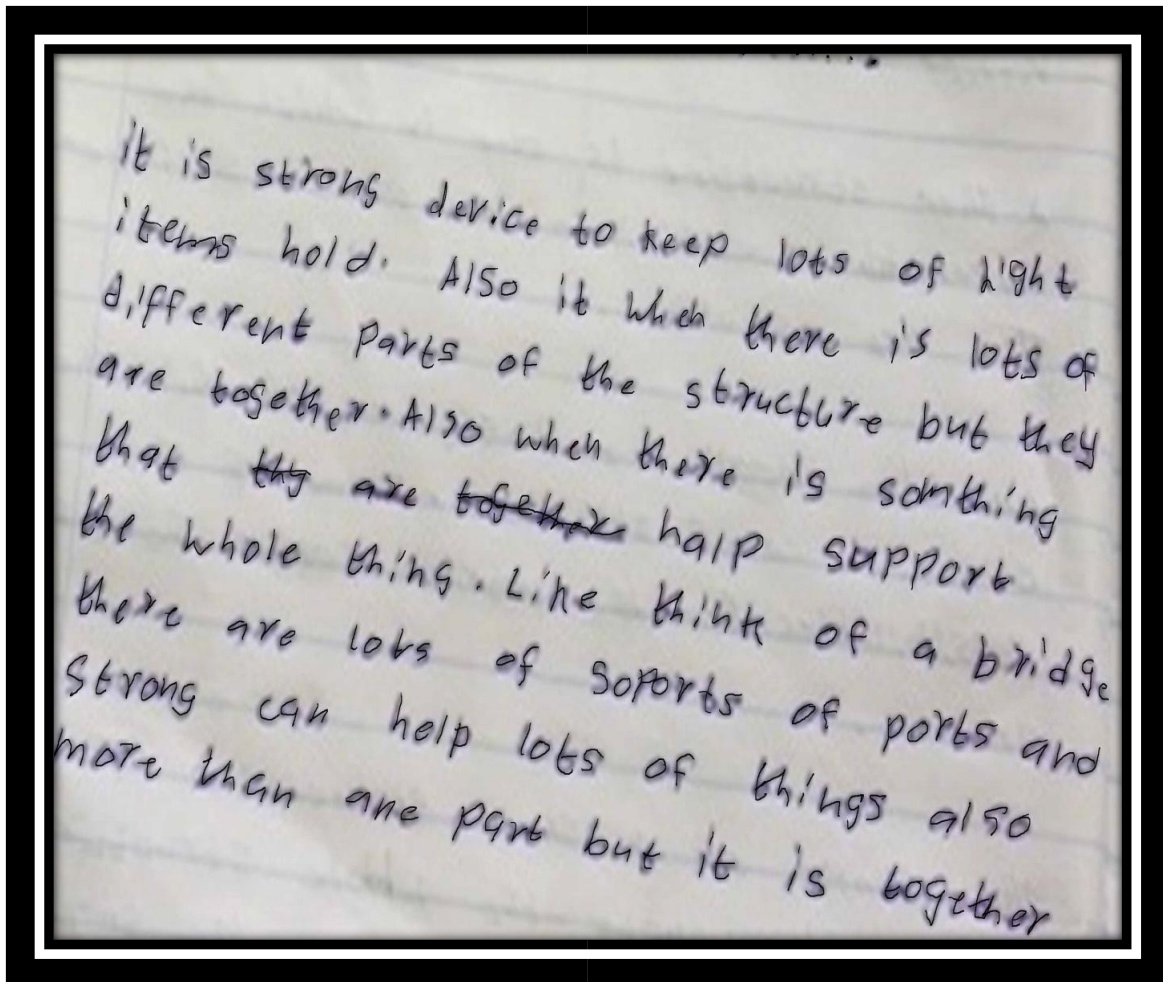 it is strong device to keep lots of hight
items hold. Also it when there is lots of
different parts of the structure but they
are together. Also when there is somthing
that thy are together halp support
the whole thing. Like think of a bridge
there are lots of soports of ports and
strong can help lots of things also
more than ane part but it is together